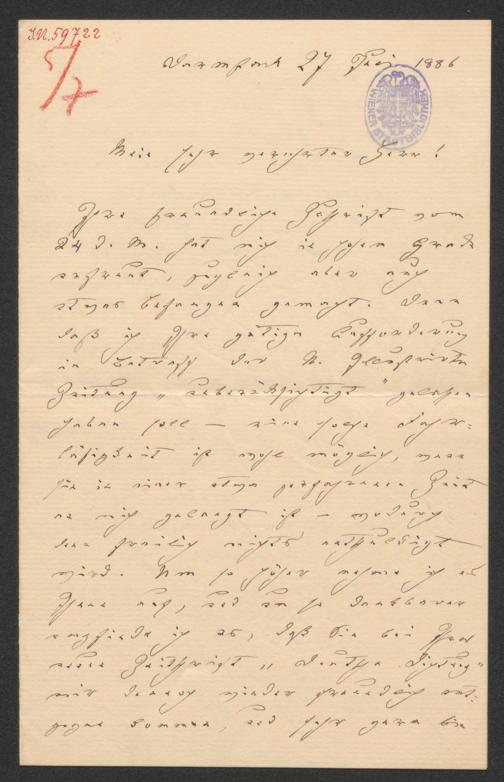 I.N. 59722
5/7
Darmstadt 27 Juni 1886
WIENER STADTBIBLIOTHEK
Mein sehr verehrter Herr!
Ihre freundliche Zuschrift vom
24 d. M. hat mich in hohem Grade
erfreut, zugleich aber auch
etwas befangen gemacht. Denn
daß ich Ihre gütige Aufforderung
in Betreff der N. Illustrirten
Zeitung „unberücksichtigt" gelassen
haben soll — eine solche Fahr-
lässigkeit ist wohl möglich, wenn
sie in einer etwas zerfahrenen Zeit
an mich gelangt ist — wodurch
denn freilich nichts entschuldigt
wird. Um so höher nehme ich es
Ihnen auf, und um so dankbarer
empfinde ich es, daß Sie bei Ihrer
neuen Zeitschrift „Deutsche Dichtung"
mir dennoch wieder freundlich ent-
gegen kommen, und sehr gern bin